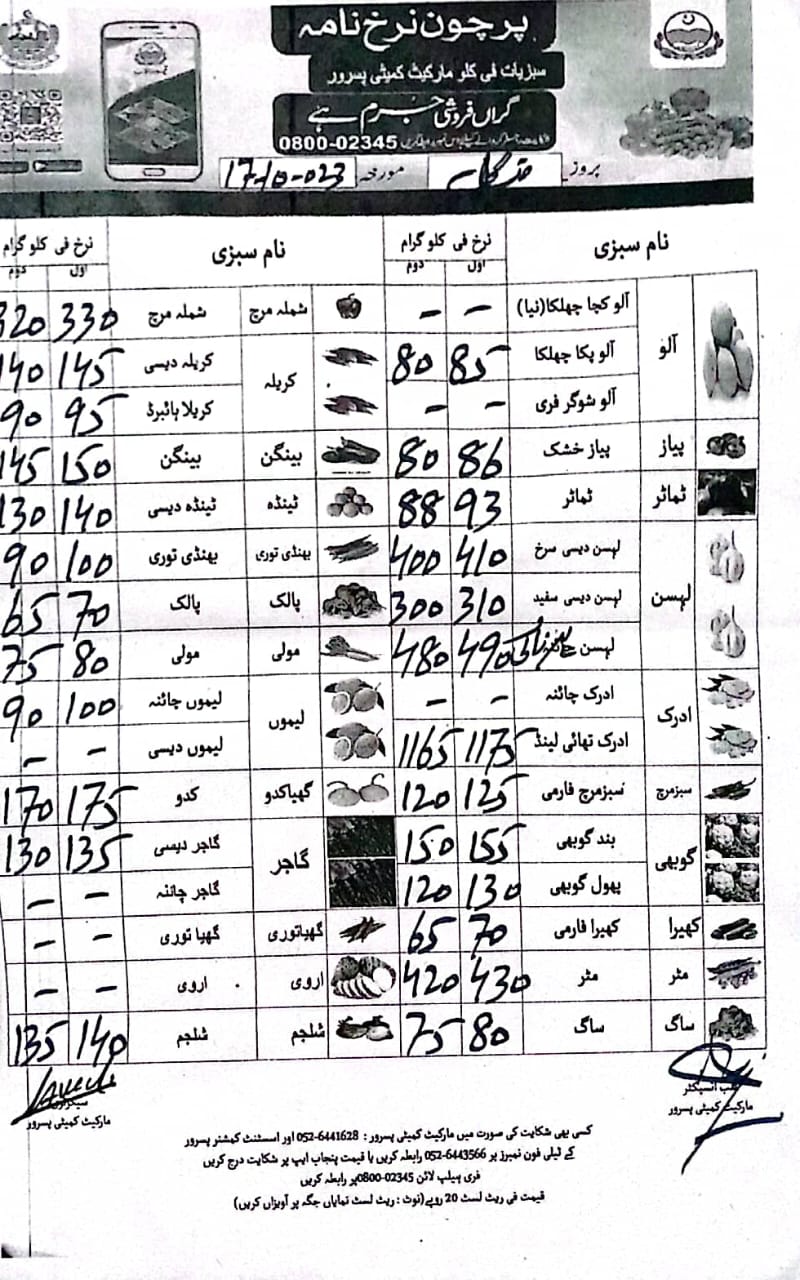 پرچون نرخ نامہ
سبزیات فی کلو مارکیٹ کمیٹی پسرور
گراں فروشی جرم ہے
0800-02345
بروز منگل مورخہ 17-10-023
نام سبزی نرخ فی کلو گرام نام سبزی نرخ فی کلو گرام
اول دوم اول دوم
آلو آلو کچا چھلکا(نیا) - - شملہ مرچ شملہ مرچ 330 320
آلو پکا چھلکا 85 80 کریلہ کریلہ دیسی 145 140
آلو شوگر فری - - کریلا ہائبرڈ 95 90
پیاز پیاز خشک 86 80 بینگن بینگن 150 145
ٹماٹر ٹماٹر 93 88 ٹینڈہ ٹینڈہ دیسی 140 130
لہسن لہسن دیسی سرخ 410 400 بھنڈی توری بھنڈی توری 100 90
لہسن دیسی سفید 310 300 پالک پالک 70 65
لہسن 490 480 مولی مولی 80 75
ادرک ادرک چائنہ - - لیموں لیموں چائنہ 100 90
ادرک تھائی لینڈ 1175 1165 لیموں دیسی - -
سبزمرچ سبزمرچ فارمی 125 120 گھیاکدو کدو 175 170
گوبھی بند گوبھی 155 150 گاجر گاجر دیسی 135 130
پھول گوبھی 130 120 گاجر چائنہ - -
کھیرا کھیرا فارمی 70 65 گھیاتوری گھیا توری - -
مٹر مٹر 430 420 اروی اروی - -
ساگ ساگ 80 75 شلجم شلجم 140 135
انسپکٹر
مارکیٹ کمیٹی پسرور
سیکرٹری
مارکیٹ کمیٹی پسرور
کسی بھی شکایت کی صورت میں مارکیٹ کمیٹی پسرور : 052-6441628 اور اسسٹنٹ کمشنر پسرور
کے ٹیلی فون نمبرز پر 052-6443566 رابطہ کریں یا قیمت پنجاب ایپ پر شکایت درج کریں
فری ہیلپ لائن 02345-0800پر رابطہ کریں
قیمت فی ریٹ لسٹ 20 روپے(نوٹ : ریٹ لسٹ نمایاں جگہ پر آویزاں کریں)